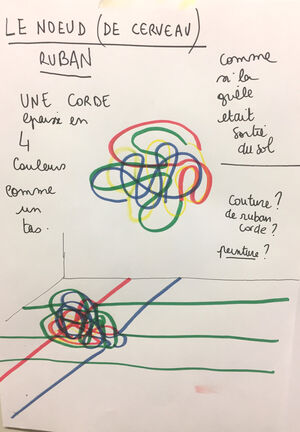 LE NOEUD (DE CERVEAU)
RUBAN
UNE CORDE
épaisse en
4
couleurs
comme
un
tas.
Comme
si la
était
sortie
du sol
couture ?
de ruban
corde ?
peinture ?